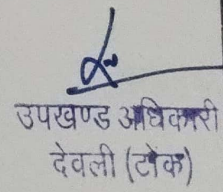 उपखण्ड अधिकारी
देवली (टोंक)